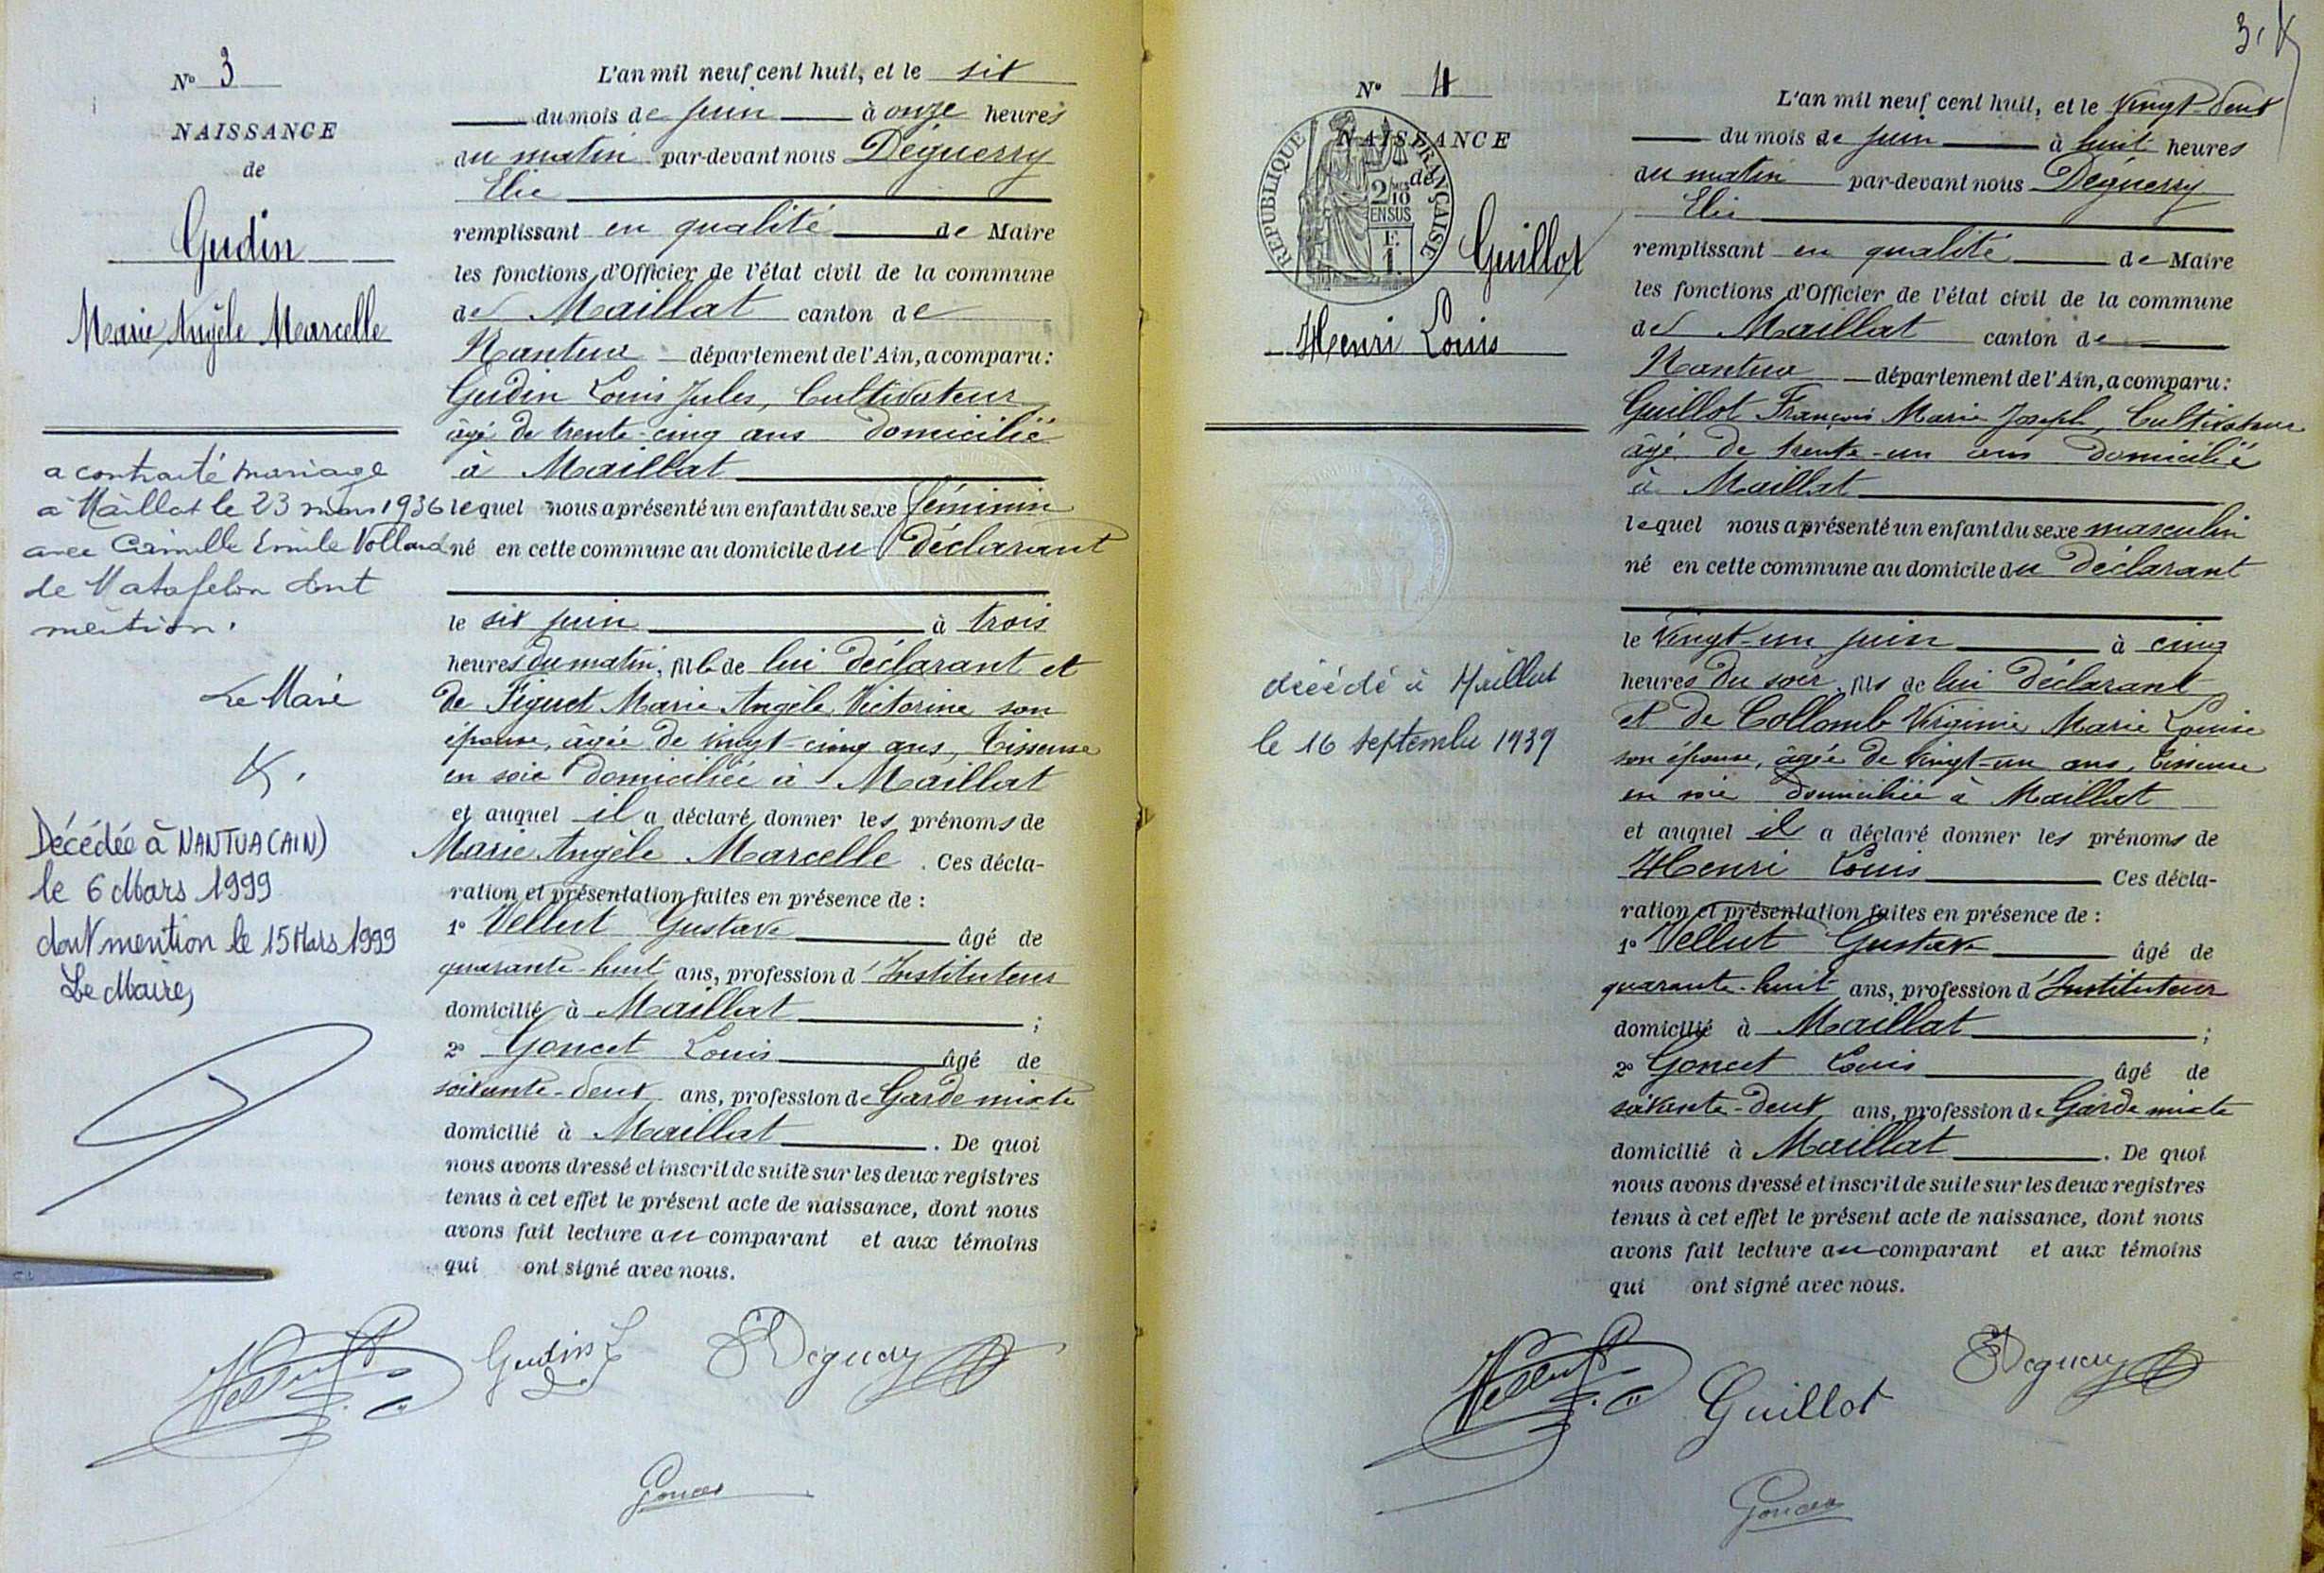 N° 3
NAISSANCE
de
Gudin
Marie Angèle Marcelle
a contracté mariage
à Maillat le 23 mars 1936
avec Camille Emile Volland
de Matafelon dont
mention.
Le Maire
Décédée à NANTUA (AIN)
le 6 Mars 1999
dont mention le 15 Mars 1999
Le Maire,
L'an mil neuf cent huit, et le six
du mois de juin à onze heures
du matin par-devant nous Déguerry
Elie
remplissant en qualité de Maire
les fonctions d'Officier de l'état civil de la commune
de Maillat canton de
Nantua département de l'Ain, a comparu :
Gudin Louis Jules, Cultivateur
âgé de trente-cinq ans domicilié
à Maillat
lequel nous a présenté un enfant du sexe féminin
né en cette commune au domicile du déclarant
le six juin à trois
heures du matin, fille de lui déclarant et
de Figuet Marie Angèle Victorine son
épouse, âgée de vingt-cinq ans, Tisseuse
en soie domiciliée à Maillat
et auquel il a déclaré donner les prénoms de
Marie Angèle Marcelle. Ces décla-
ration et présentation faites en présence de :
1° Vellut Gustave âgé de
quarante-huit ans, profession d'Instituteur
domicilié à Maillat ;
2° Goncet Louis âgé de
soixante-deux ans, profession de Garde mixte
domicilié à Maillat. De quoi
nous avons dressé et inscrit de suite sur les deux registres
tenus à cet effet le présent acte de naissance, dont nous
avons fait lecture au comparant et aux témoins
qui ont signé avec nous.
Vellut Gudin L EDeguerry
J
Goncet
3.
N° 4
NAISSANCE
de
RÉPUBLIQUE FRANÇAISE
2/10
EN SUS
F.
1.
Guillot
Henri Louis
décédé à Maillat
le 16 septembre 1939
L'an mil neuf cent huit, et le vingt-deux
du mois de juin à huit heures
du matin par-devant nous Déguerry
Elie
remplissant en qualité de Maire
les fonctions d'Officier de l'état civil de la commune
de Maillat canton de
Nantua département de l'Ain, a comparu :
Guillot François Marie Joseph, Cultivateur
âgé de trente-un ans domicilié
à Maillat
lequel nous a présenté un enfant du sexe masculin
né en cette commune au domicile du déclarant
le vingt-un juin à cinq
heures du soir, fils de lui déclarant
et de Collomb Virginie Marie Louise
son épouse, âgée de vingt-un ans, Tisseuse
en soie domiciliée à Maillat
et auquel il a déclaré donner les prénoms de
Henri Louis Ces décla-
ration et présentation faites en présence de :
1° Vellut Gustave âgé de
quarante-huit ans, profession d'Instituteur
domicilié à Maillat ;
2° Goncet Louis âgé de
soixante-deux ans, profession de Garde mixte
domicilié à Maillat. De quoi
nous avons dressé et inscrit de suite sur les deux registres
tenus à cet effet le présent acte de naissance, dont nous
avons fait lecture au comparant et aux témoins
qui ont signé avec nous.
Vellut Guillot EDeguerry
Goncet